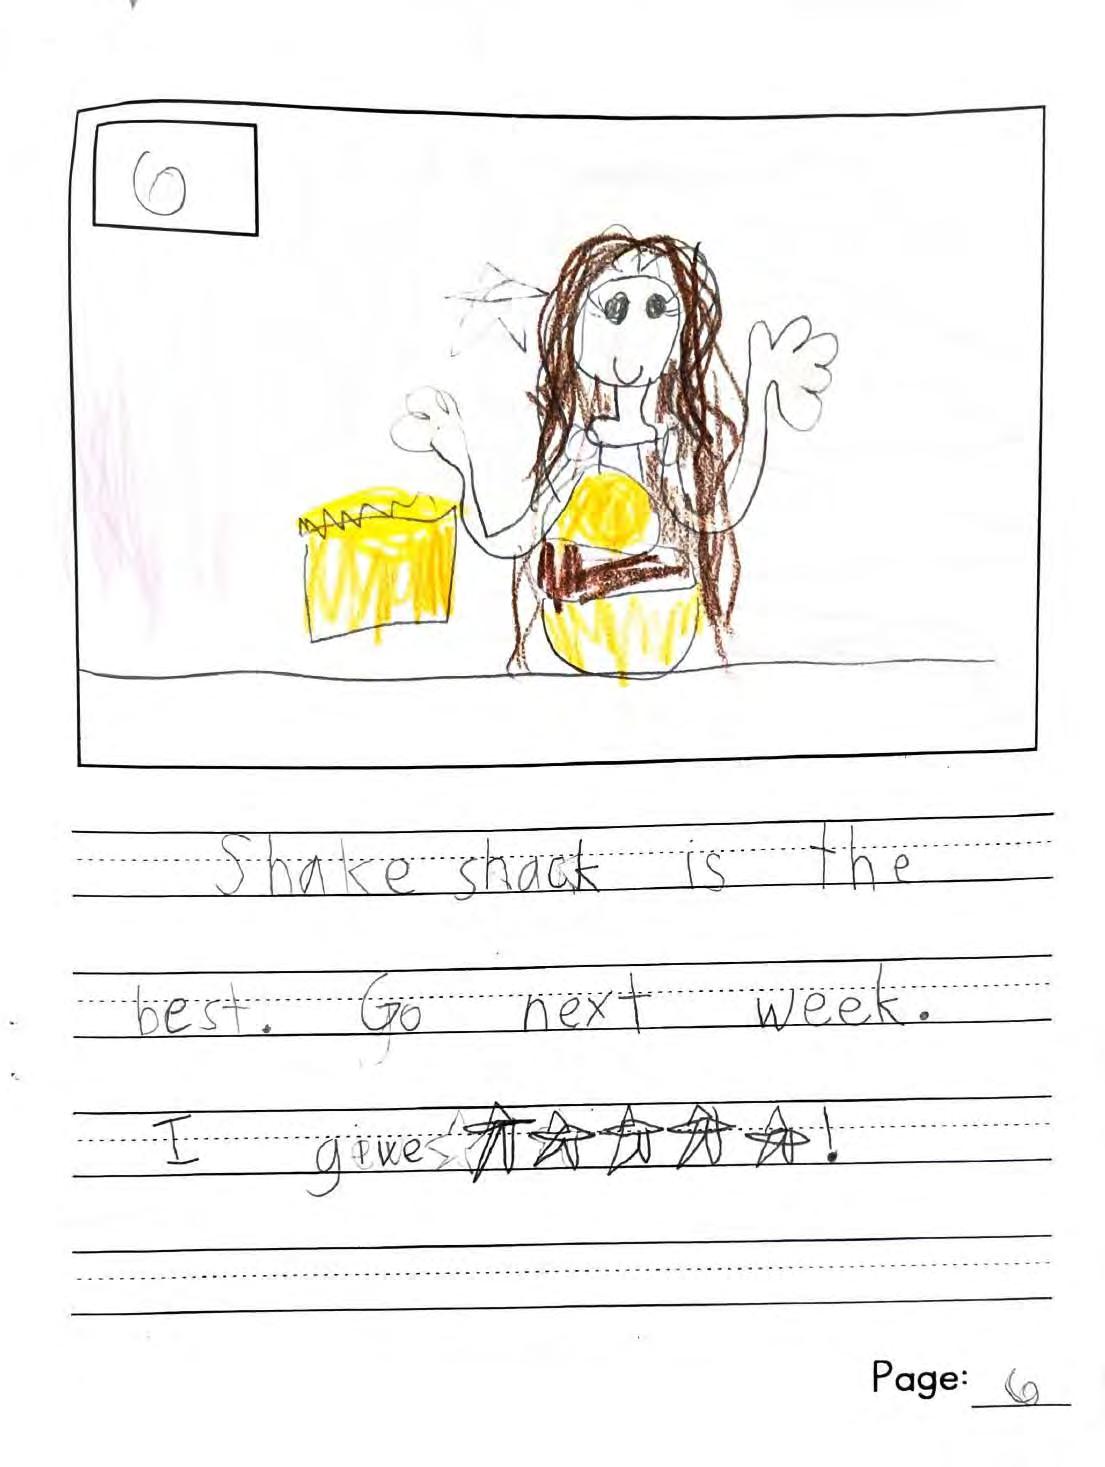 6
Shake shack is the
best. Go next week.
I give ☆★★★★★!
Page: 6